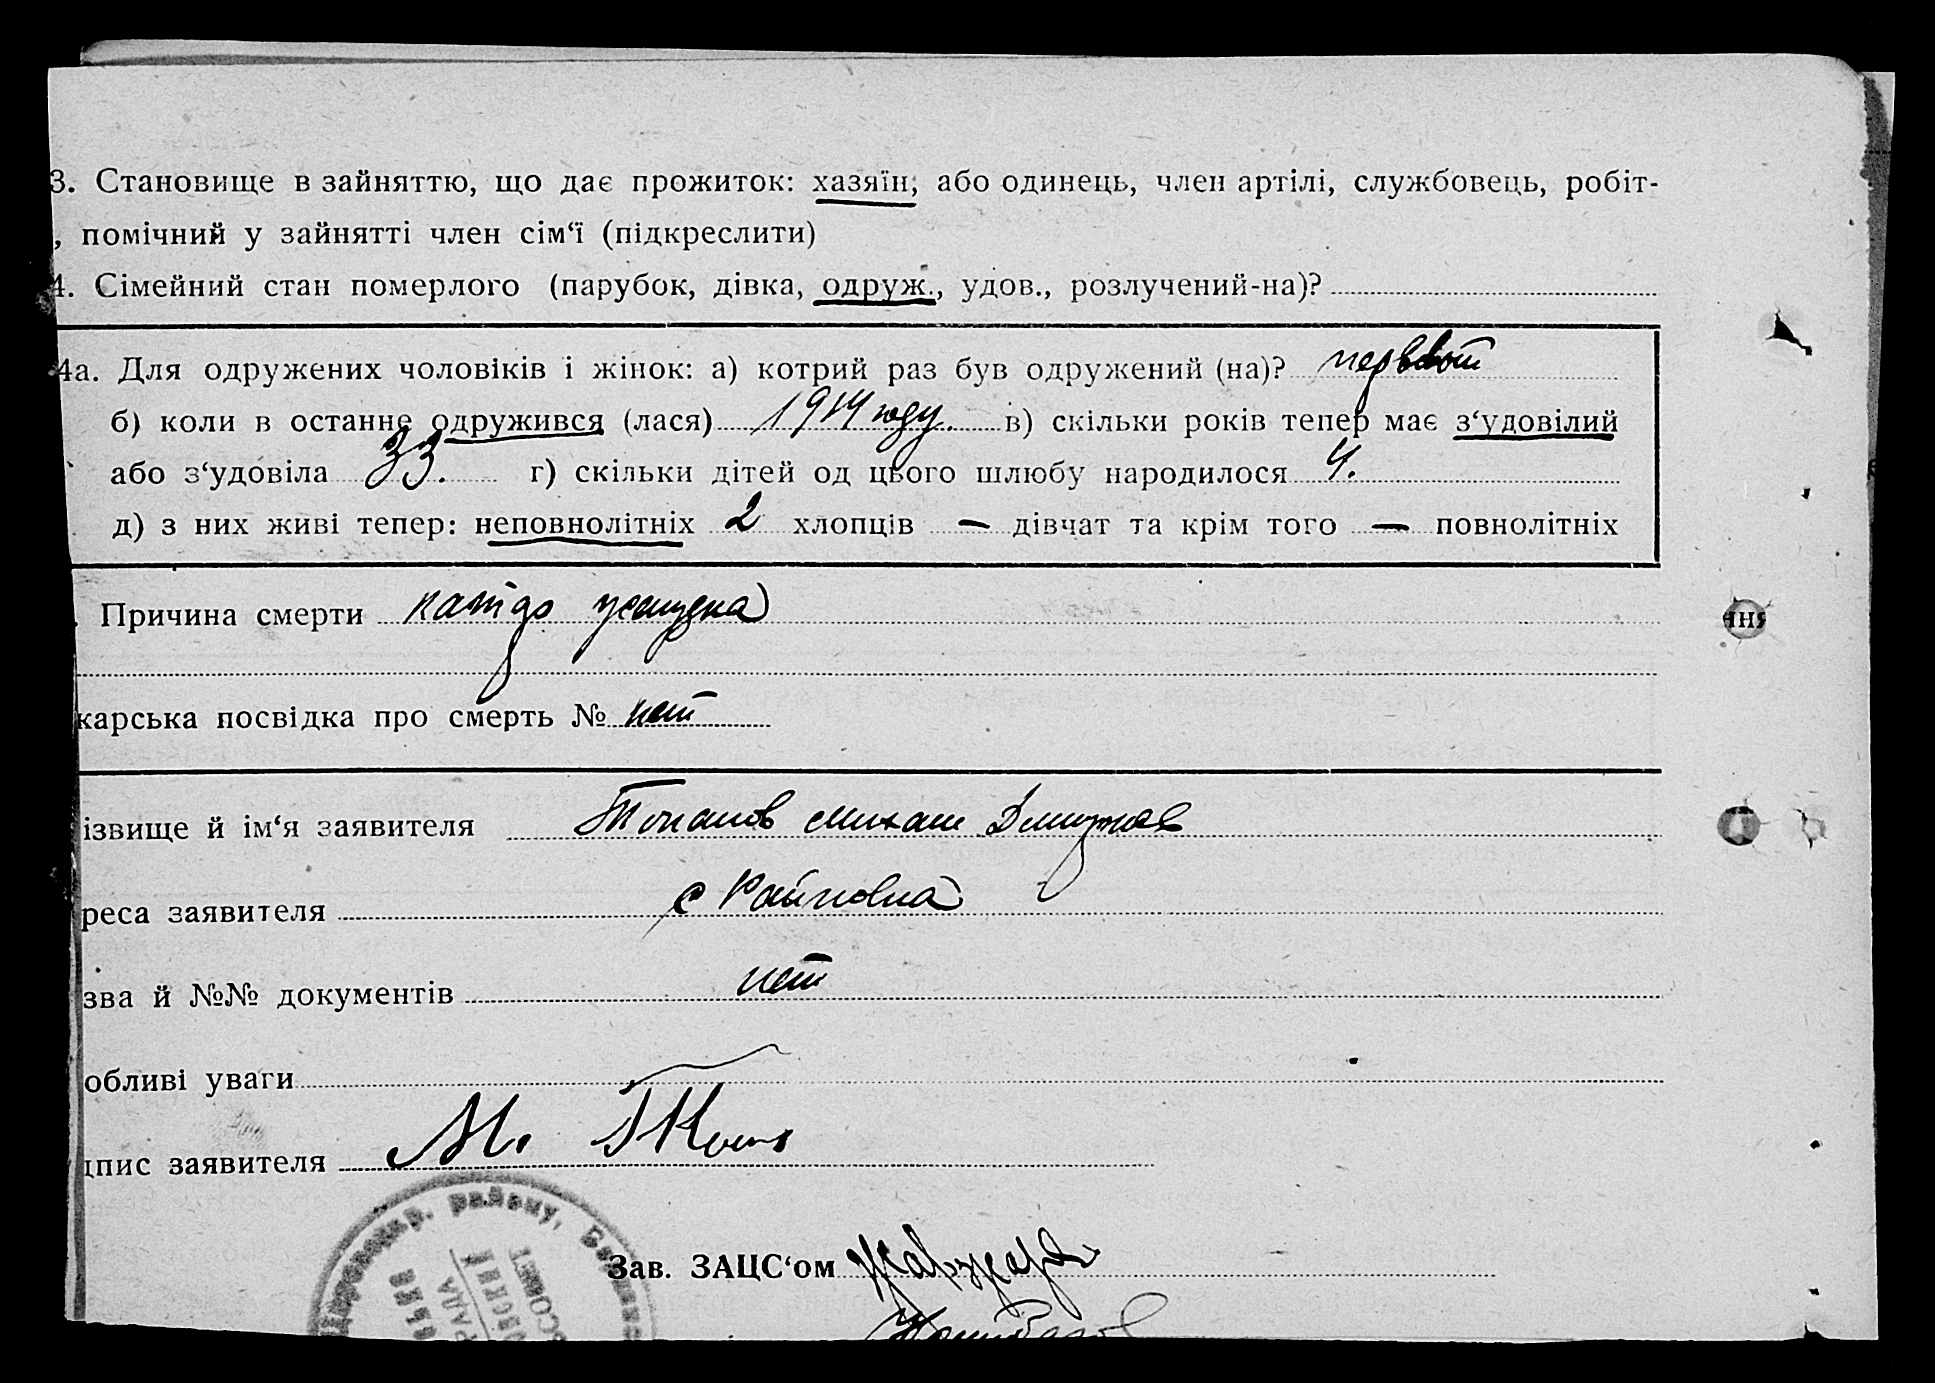 3. Становище в зайняттю, що дає прожиток: хазяїн, або одинець, член артілі, службовець, робіт-
, помічний у зайнятті член сім‘ї (підкреслити)
4. Сімейний стан померлого (парубок, дівка, одруж., удов., розлучений-на)?
4а. Для одружених чоловіків і жінок: а) котрий раз був одружений (на)? первый
б) коли в останнє одружився (лася) 1914 году. в) скільки років тепер має з‘удовілий
або з‘удовіла 33. г) скільки дітей од цього шлюбу народилося 4.
д) з них живі тепер: неповнолітніх 2 хлопців — дівчат та крім того — повнолітніх
Причина смерти
карська посвідка про смерть № нет
ізвище й ім‘я заявителя
реса заявителя с
зва й №№ документів нет
обливі уваги
дпис заявителя М.
району,
РАДА
Зав. ЗАЦС‘ом
ння